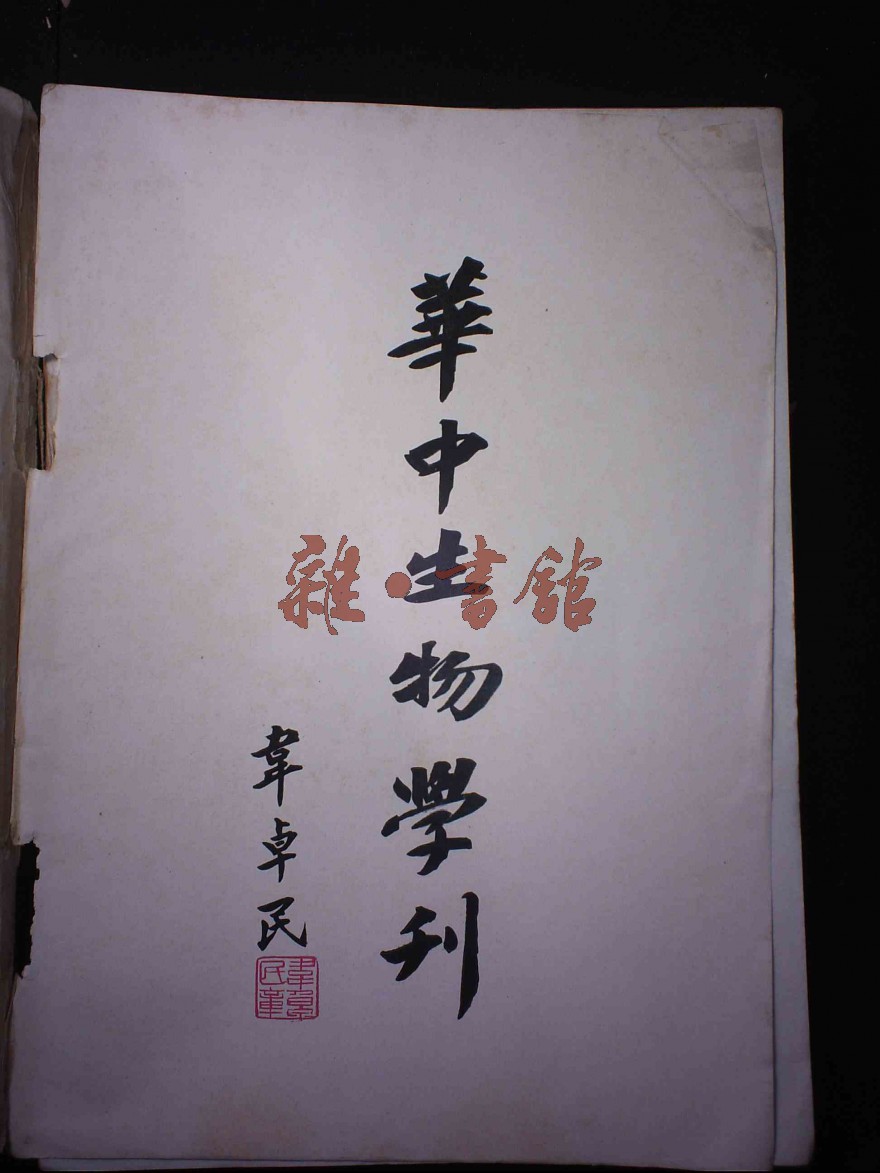 華中生物學刊
韋卓民
韋卓民章
雜·書館